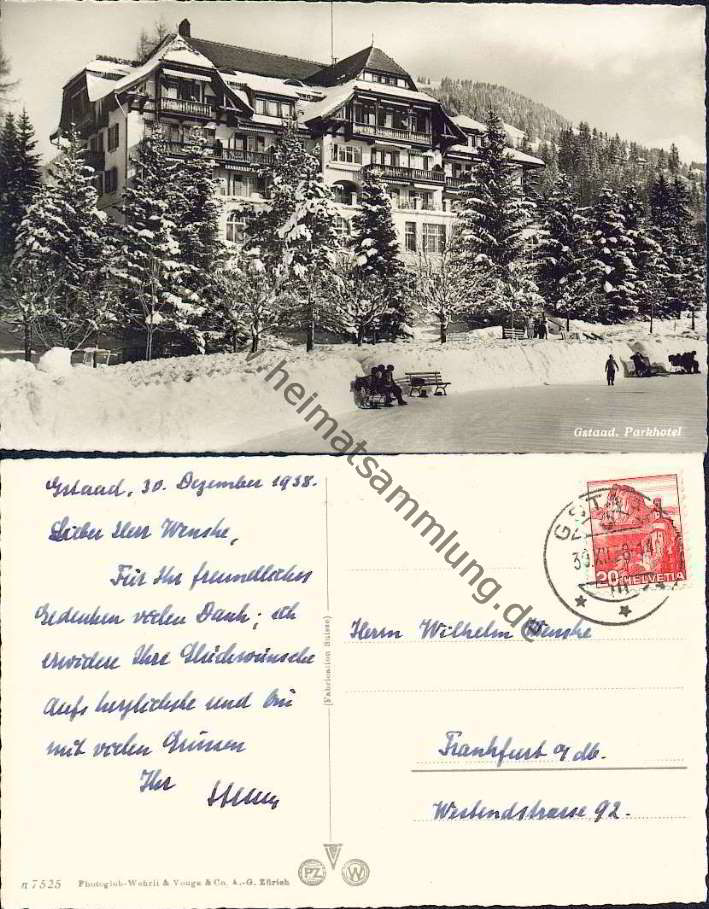 Gstaad, Parkhotel
www.heimatsammlung.de
Gstaad, 30. Dezember 1938.
Lieber Herr Wenske,
Für Ihr freundliches
Gedenken vielen Dank; ich
erwidere Ihre Glückwünsche
aufs herzlichste und bin
mit vielen Grüssen
Ihr
(Fabrication Suisse)
20 HELVETIA
Herrn Wilhelm Wenske
Frankfurt a/ db.
Westendstrasse 92.
n 7525 Photoglob-Wehrli & Vouga & Co. A.-G. Zürich
PZ W